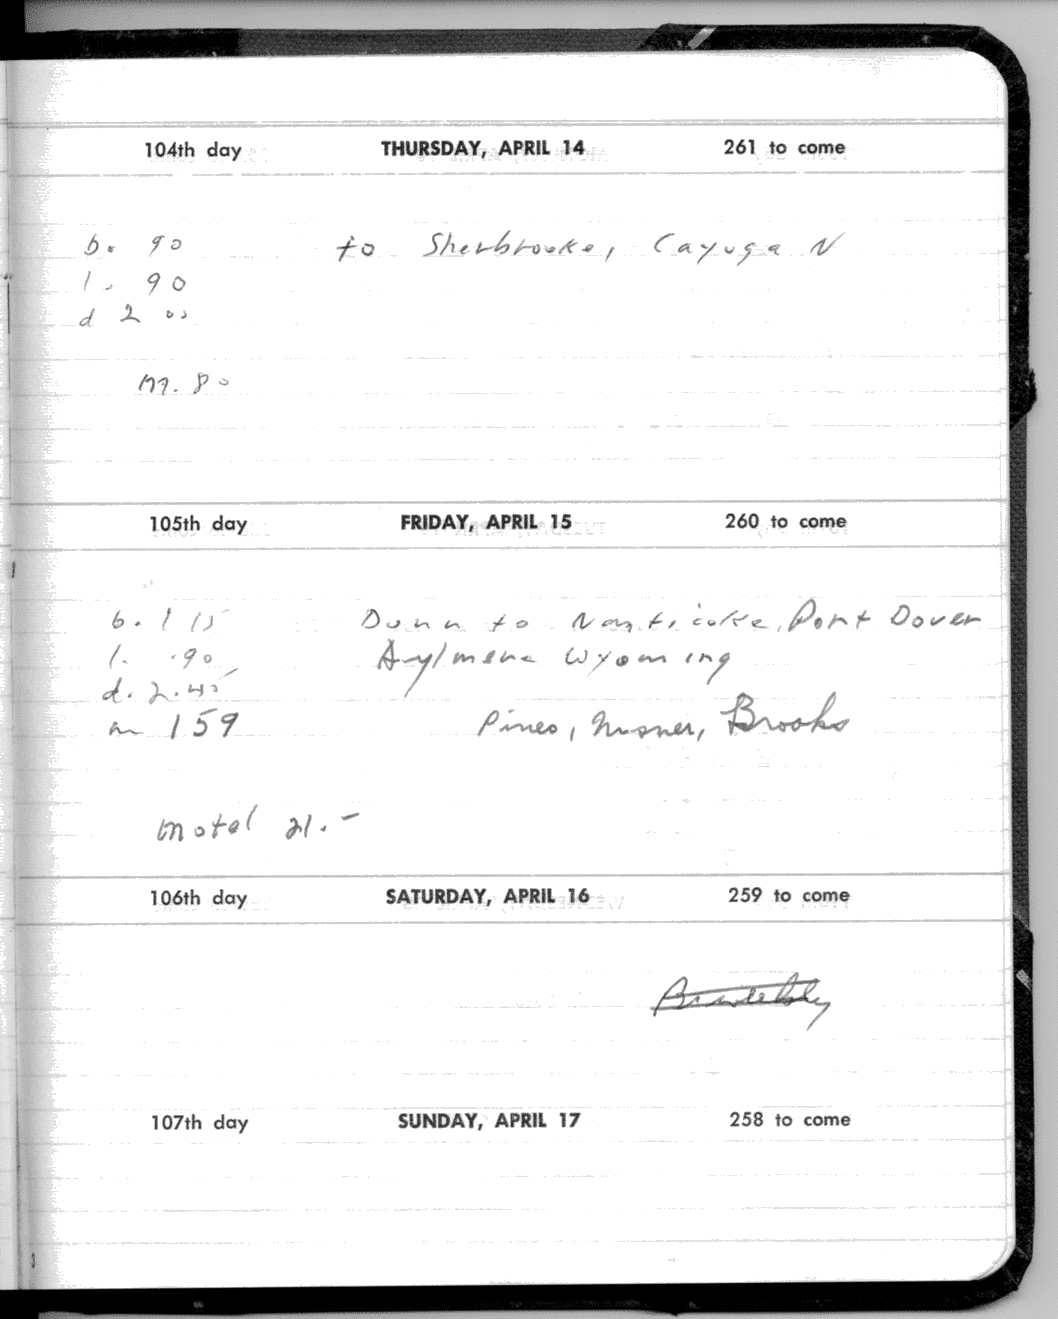 104th day THURSDAY, APRIL 14 261 to come
b. 90 to Sherbrooke, Cayuga N
l. 90
d 2 00
m. 80
105th day FRIDAY, APRIL 15 260 to come
b. 1 15 Dunn to Nanticoke, Port Dover
l. .90 Aylmer Wyoming
d. 2.45
m 159 Pineo, Misner, Brooks
motel 21.-
106th day SATURDAY, APRIL 16 259 to come
107th day SUNDAY, APRIL 17 258 to come